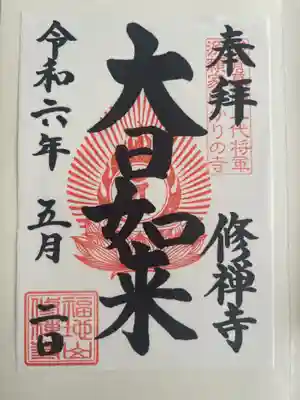 奉拝
代将軍
源頼家ゆかりの寺
修禅寺
大日如来
令和六年 五月 日
福地山
修禅寺